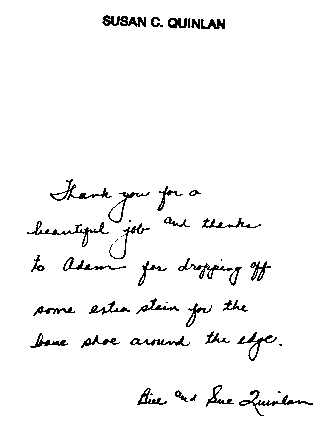 SUSAN C. QUINLAN
Thank you for a
beautiful job and thanks
to Adam for dropping off
some extra stain for the
base shoe around the edge.
Bill and Sue Quinlan